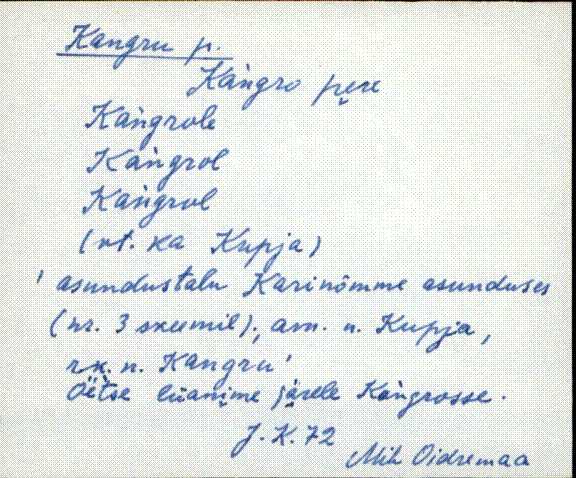 Kangru p.
Kàngro pere
Kàngrole
Kàngrol
Kàngrol
(vt. ka Kupja)
' asundustalu Karinõmme asunduses
(nr. 3 skeemil); am. n. Kupja,
rk. n. Kangru'
Öetse liianime järele Kàngrosse.
J. K. 72
Mih Oidremaa